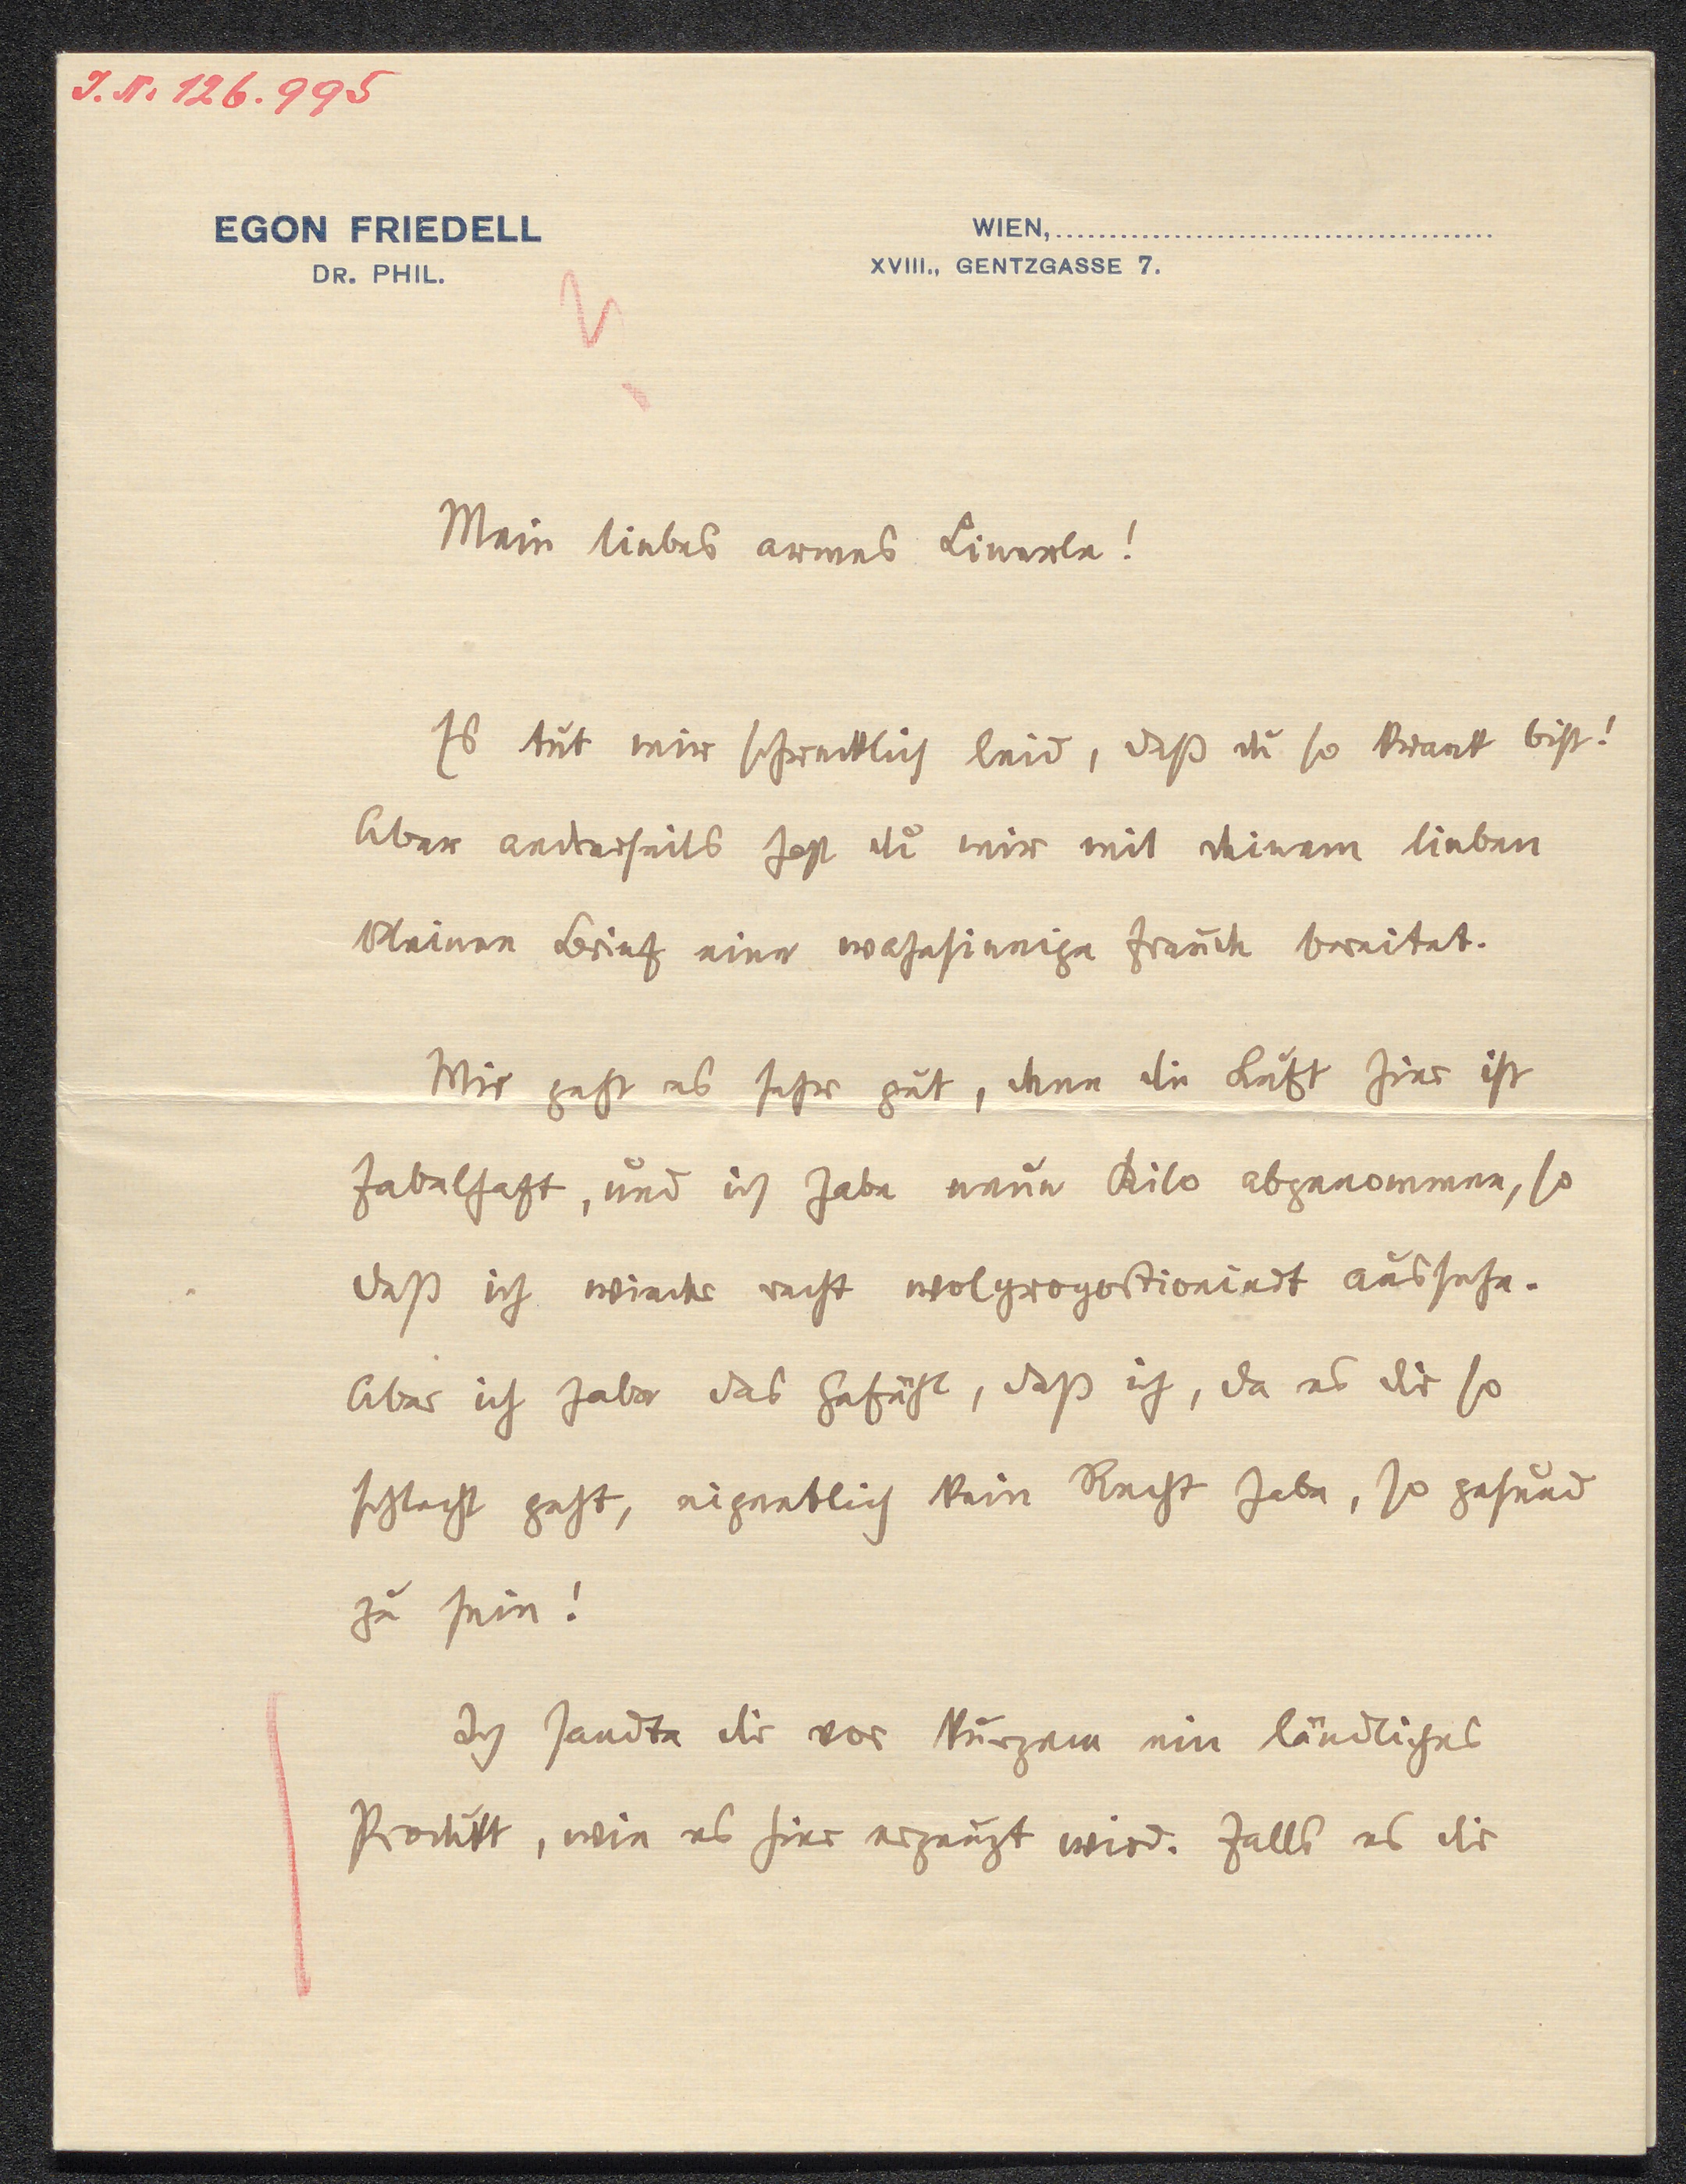 I. N. 126.995
EGON FRIEDELL
DR. PHIL.
WIEN,
XVIII., GENTZGASSE 7.
Mein liebes armes Linerle!
Es tut mir schrecklich leid, daß du so krank bist!
Aber anderseits hast du mir mit deinem lieben
kleinen Brief eine wahnsinnige Freude bereitet.
Mir geht es sehr gut, denn die Luft hier ist
fabelhaft, und ich habe neun Kilo abgenommen, so
daß ich wieder recht wolproportioniert aussehe.
Aber ich habe das Gefühl, daß ich, da es dir so
schlecht geht, eigentlich kein Recht habe, so gesund
zu sein!
Ich sandte dir vor kurzem ein ländliches
Produkt, wie es hier erzeugt wird. Falls es dir